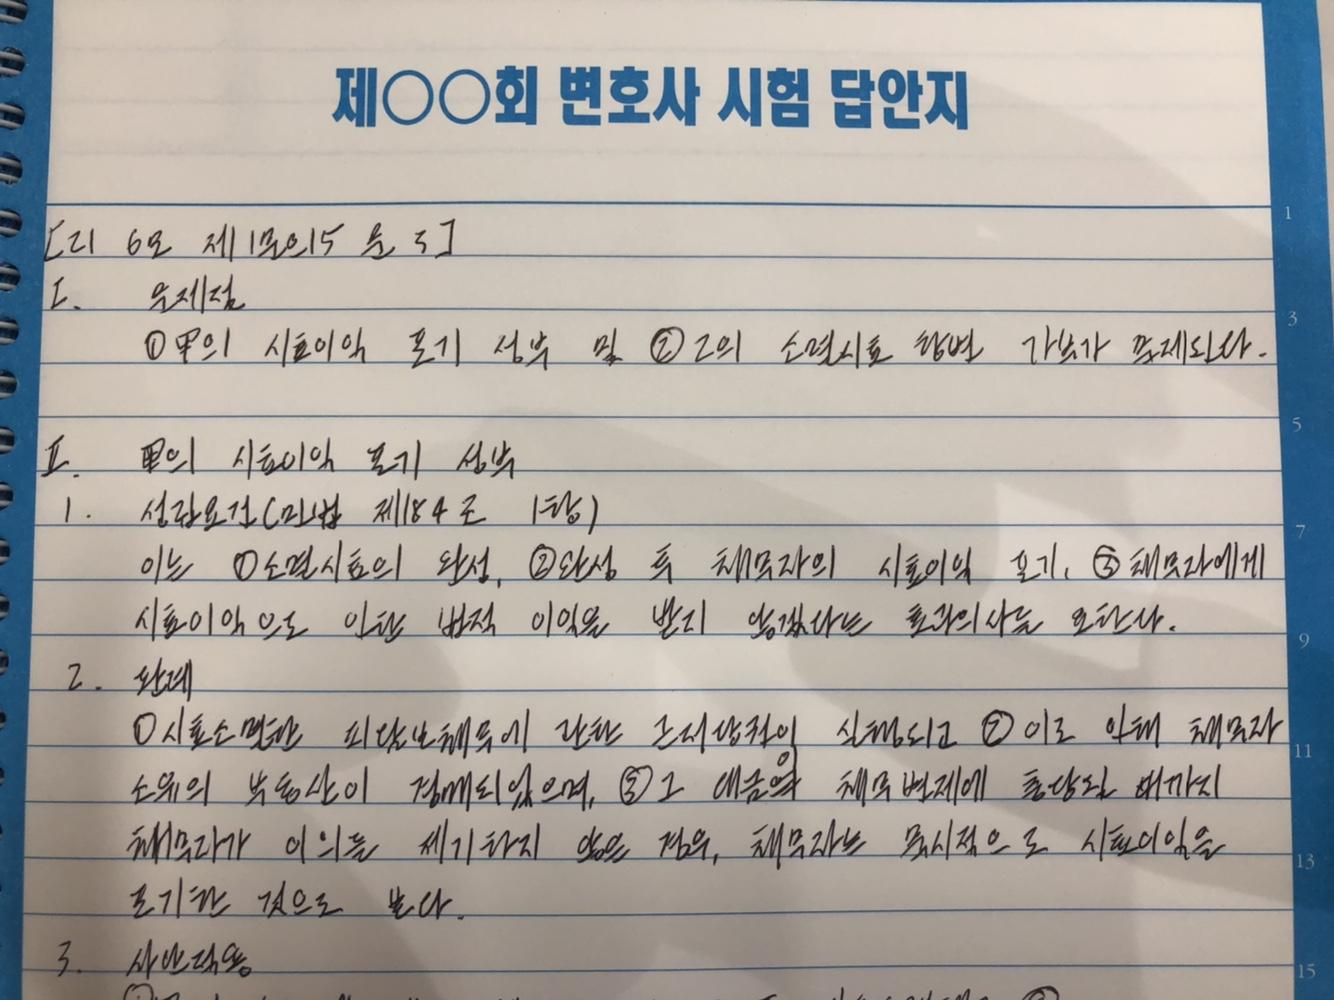 제○○회 변호사 시험 답안지
1
[리 6모 제1문의5 문 3]
I. 문제점
3
①甲의 시효이익 포기 성부 및 ②乙의 소멸시효 항변 가부가 문제된다.
5
II. 甲의 시효이익 포기 성부
1. 성립요건(민법 제184조 1항)
7
이는 ①소멸시효의 완성, ②완성 후 채무자의 시효이익 포기, ③채무자에게
시효이익으로 인한 법적 이익을 받지 않겠다는 효과의사를 요한다.
9
2. 판례
①시효소멸한 피담보채무에 관한 근저당권이 실행되고 ②이로 인해 채무자
11
소유의 부동산이 경매되었으며, ③그 대금이 채무변제에 충당될 때까지
채무자가 이의를 제기하지 않은 경우, 채무자는 묵시적으로 시효이익을
13
포기한 것으로 본다.
3. 사안적용
15